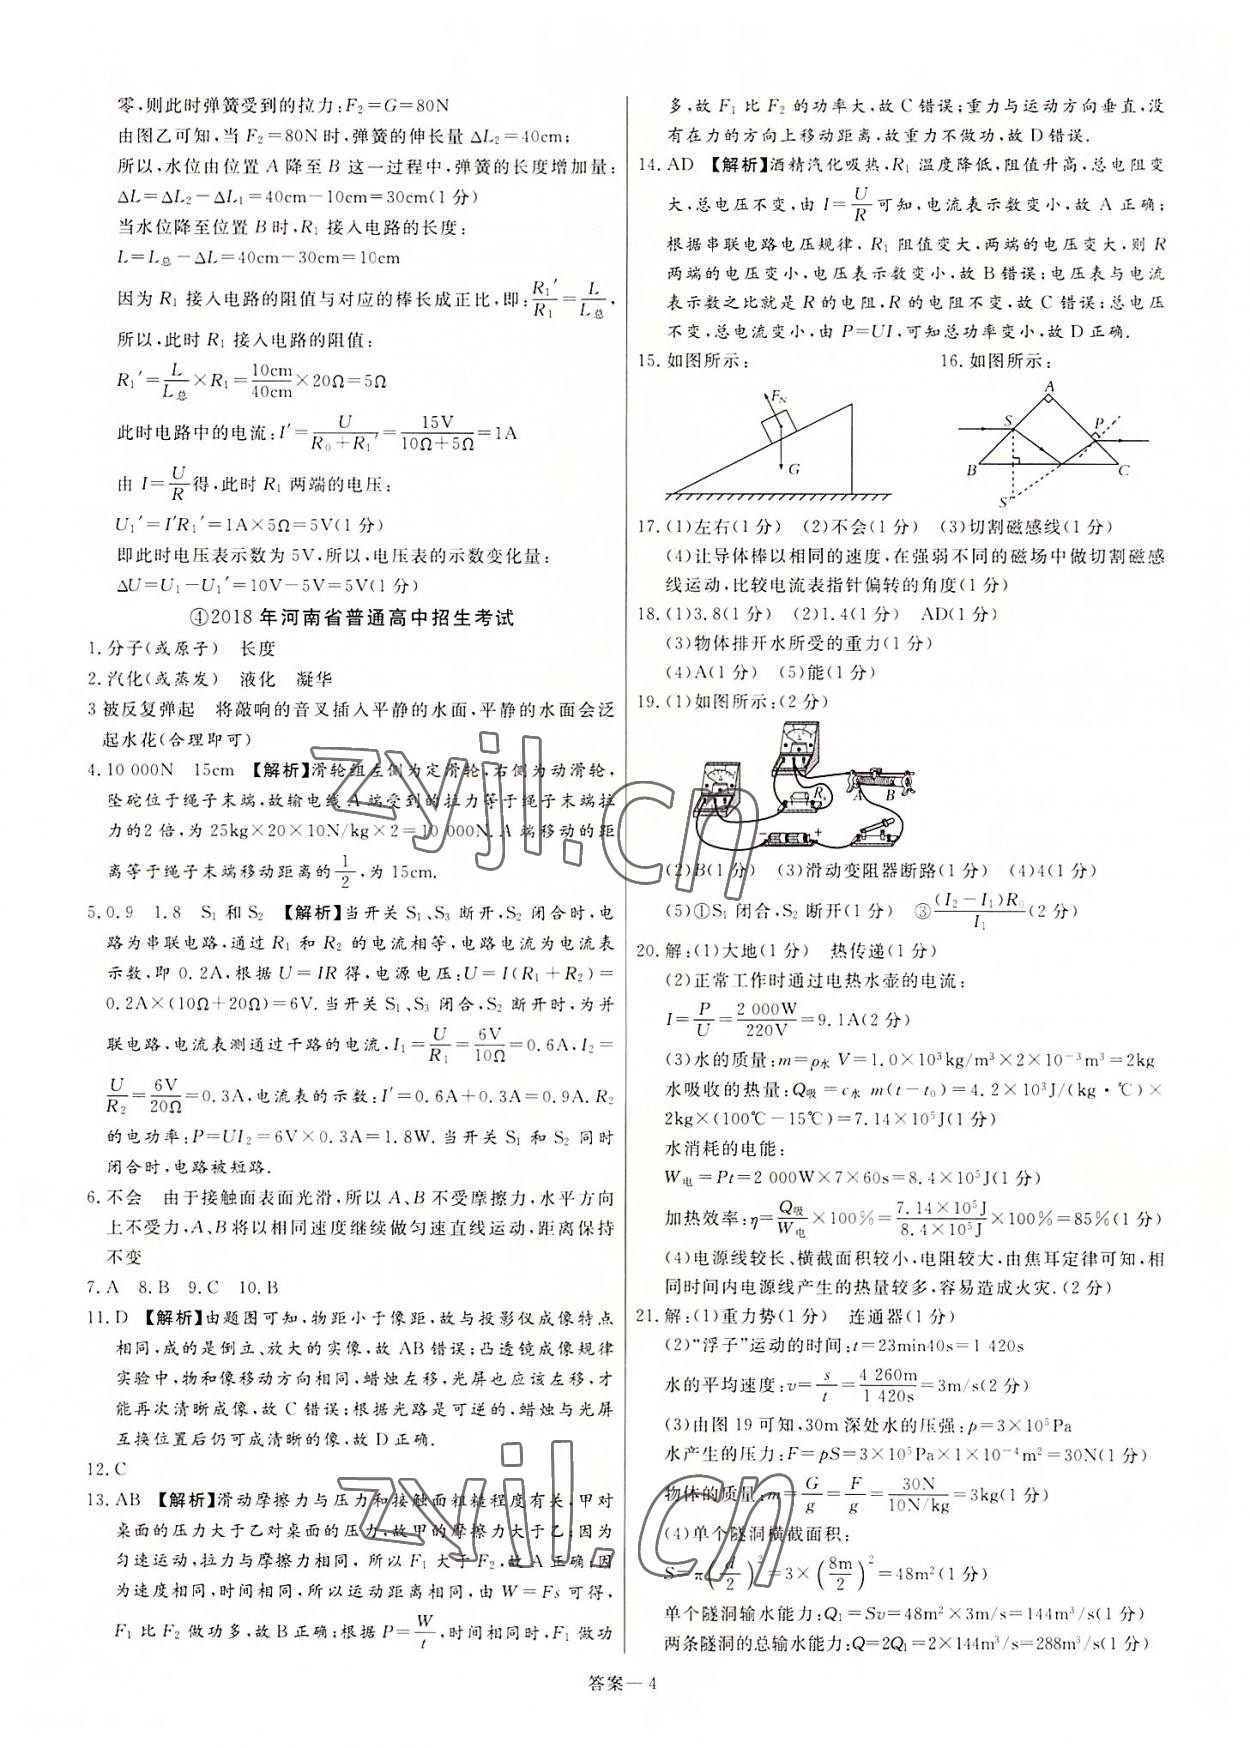 零,则此时弹簧受到的拉力:F₂=G=80N
由图乙可知,当 F₂=80N 时,弹簧的伸长量 ΔL₂=40cm;
所以,水位由位置 A 降至 B 这一过程中,弹簧的长度增加量:
ΔL=ΔL₂-ΔL₁=40cm-10cm=30cm(1 分)
当水位降至位置 B 时,R₁ 接入电路的长度:
L=L总-ΔL=40cm-30cm=10cm
因为 R₁ 接入电路的阻值与对应的棒长成正比,即:R₁′/R₁=L/L总,
所以,此时 R₁ 接入电路的阻值:
R₁′=L/L总×R₁=10cm/40cm×20Ω=5Ω
此时电路中的电流:I′=U/(R₀+R₁′)=15V/(10Ω+5Ω)=1A
由 I=U/R得,此时 R₁ 两端的电压:
U₁′=I′R₁′=1A×5Ω=5V(1 分)
即此时电压表示数为 5V,所以,电压表的示数变化量:
ΔU=U₁-U₁′=10V-5V=5V(1 分)
④2018 年河南省普通高中招生考试
1. 分子(或原子) 长度
2. 汽化(或蒸发) 液化 凝华
3 被反复弹起 将敲响的音叉插入平静的水面,平静的水面会泛
起水花(合理即可)
4. 10 000N 15cm 【解析】滑轮组左侧为定滑轮,右侧为动滑轮,
坠砣位于绳子末端,故输电线 A 端受到的拉力等于绳子末端拉
力的2 倍,为 25kg×20×10N/kg×2=10 000N. A 端移动的距
离等于绳子末端移动距离的1/2,为 15cm.
5. 0.9 1.8 S₁ 和 S₂ 【解析】当开关 S₁、S₃ 断开,S₂ 闭合时,电
路为串联电路,通过 R₁ 和 R₂ 的电流相等,电路电流为电流表
示数,即 0.2A,根据 U=IR 得,电源电压:U=I(R₁+R₂)=
0.2A×(10Ω+20Ω)=6V. 当开关 S₁、S₃ 闭合,S₂ 断开时,为并
联电路,电流表测通过干路的电流,I₁=U/R₁=6V/10Ω=0.6A,I₂=
U/R₂=6V/20Ω=0.3A,电流表的示数:I′=0.6A+0.3A=0.9A. R₂
的电功率:P=UI₂=6V×0.3A=1.8W. 当开关 S₁ 和 S₂ 同时
闭合时,电路被短路.
6. 不会 由于接触面表面光滑,所以 A、B 不受摩擦力,水平方向
上不受力,A、B 将以相同速度继续做匀速直线运动,距离保持
不变
7. A 8. B 9. C 10. B
11. D 【解析】由题图可知,物距小于像距,故与投影仪成像特点
相同,成的是倒立、放大的实像,故 AB 错误;凸透镜成像规律
实验中,物和像移动方向相同,蜡烛左移,光屏也应该左移,才
能再次清晰成像,故 C 错误;根据光路是可逆的,蜡烛与光屏
互换位置后仍可成清晰的像,故 D 正确.
12. C
13. AB 【解析】滑动摩擦力与压力和接触面粗糙程度有关,甲对
桌面的压力大于乙对桌面的压力,故甲的摩擦力大于乙;因为
匀速运动,拉力与摩擦力相同,所以 F₁ 大于 F₂,故 A 正确;因
为速度相同,时间相同,所以运动距离相同,由 W=Fs 可得,
F₁ 比 F₂ 做功多,故 B 正确;根据 P=W/t,时间相同时,F₁ 做功
多,故 F₁ 比 F₂ 的功率大,故 C 错误;重力与运动方向垂直,没
有在力的方向上移动距离,故重力不做功,故 D 错误.
14. AD 【解析】酒精汽化吸热,R₁ 温度降低,阻值升高,总电阻变
大,总电压不变,由 I=U/R可知,电流表示数变小,故 A 正确;
根据串联电路电压规律,R₁ 阻值变大,两端的电压变大,则 R
两端的电压变小,电压表示数变小,故 B 错误;电压表与电流
表示数之比就是 R 的电阻,R 的电阻不变,故 C 错误;总电压
不变,总电流变小,由 P=UI,可知总功率变小,故 D 正确.
15. 如图所示: 16. 如图所示:
F_N G
A S P B C S′
17. (1)左右(1 分) (2)不会(1 分) (3)切割磁感线(1 分)
(4)让导体棒以相同的速度,在强弱不同的磁场中做切割磁感
线运动,比较电流表指针偏转的角度(1 分)
18. (1)3.8(1 分) (2)1.4(1 分) AD(1 分)
(3)物体排开水所受的重力(1 分)
(4)A(1 分) (5)能(1 分)
19. (1)如图所示:(2 分)
A B
− +
(2)B(1 分) (3)滑动变阻器断路(1 分) (4)4(1 分)
(5)①S₁ 闭合,S₂ 断开(1 分) ③(I₂-I₁)R₀/I₁(2 分)
20. 解:(1)大地(1 分) 热传递(1 分)
(2)正常工作时通过电热水壶的电流:
I=P/U=2 000W/220V=9.1A(2 分)
(3)水的质量:m=ρ水 V=1.0×10³kg/m³×2×10⁻³m³=2kg
水吸收的热量:Q吸=c水 m(t-t₀)=4.2×10³J/(kg·℃)×
2kg×(100℃-15℃)=7.14×10⁵J(1 分)
水消耗的电能:
W电=Pt=2 000W×7×60s=8.4×10⁵J(1 分)
加热效率:η=Q吸/W电×100%=7.14×10⁵J/8.4×10⁵J×100%=85%(1 分)
(4)电源线较长、横截面积较小,电阻较大,由焦耳定律可知,相
同时间内电源线产生的热量较多,容易造成火灾.(2 分)
21. 解:(1)重力势(1 分) 连通器(1 分)
(2)“浮子”运动的时间:t=23min40s=1 420s
水的平均速度:v=s/t=4 260m/1 420s=3m/s(2 分)
(3)由图 19 可知,30m 深处水的压强:p=3×10⁵Pa
水产生的压力:F=pS=3×10⁵Pa×1×10⁻⁴m²=30N(1 分)
物体的质量:m=G/g=F/g=30N/10N/kg=3kg(1 分)
(4)单个隧洞横截面积:
S=π(d/2)²=3×(8m/2)²=48m²(1 分)
单个隧洞输水能力:Q₁=Sv=48m²×3m/s=144m³/s(1 分)
两条隧洞的总输水能力:Q=2Q₁=2×144m³/s=288m³/s(1 分)
答案— 4
zyjl.cn
zyjl.cn